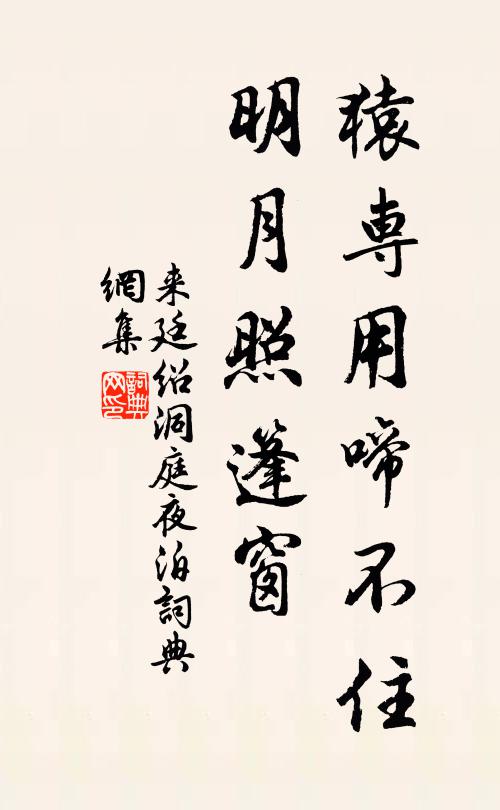 猿専用啼不住
明月照蓬窗
来廷绍洞庭夜泊詞典
網集
詞典
网印